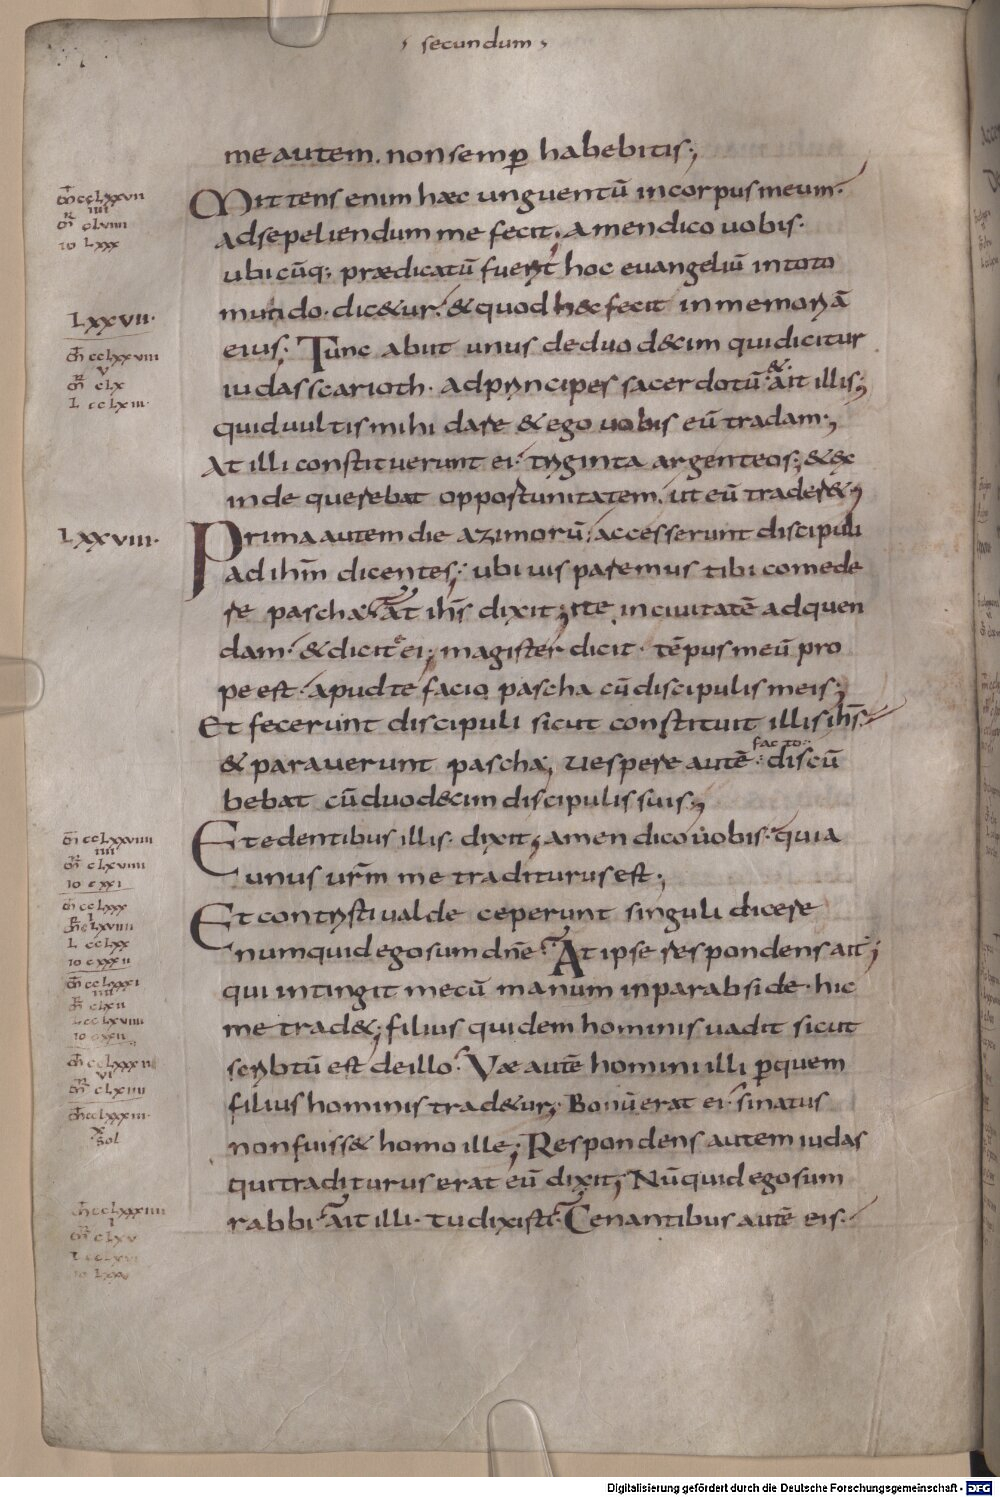 secundum
me autem. non semp̄ habebitis;
Mittens enim hæc unguentū in corpus meum·
ad sepeliendum me fecit; Amen dico uobis·
ubicūq; prædicatū fuerit hoc euangeliū in toto
mundo· dic&ur· & quod hęc fecit in memoriā
eius; Tunc abiit unus de duod&cim qui dicitur
iudas scarioth· ad principes sacerdotū· & ait illis;
quid uultis mihi dare & ego uobis eū tradam;
At illi constituerunt ei· triginta argenteos; & ex
inde querebat oppostunitatem, ut eū trader&;
Prima autem die azimorū; accesserunt discipuli
ad ih̄m dicentes; ubi uis paremus tibi comede
re pascha; At ih̄s dixit; ite in ciuitatē ad quen
dam· & dicite ei; magister dicit· tēpus meū pro
pe est· apud te facio pascha cū discipulis meis;
Et fecerunt discipuli sicut constituit illis ih̄s·
& parauerunt pascha, Uespere autē facto· discū
bebat cū duod&cim discipulis suis;
Et edentibus illis· dixit; amen dico uobis· quia
unus ur̄m me traditurus est;
Et contristi ualde ceperunt singuli dicere
numquid ego sum dn̄e· At ipse respondens ait;
qui intingit mecū manum in parabside· hic
me trad&; filius quidem hominis uadit sicut
scribtū est de illo· Væ autē homini illi p̄ quem
filius hominis trad&ur; Bonū erat ei· si natus
non fuiss& homo ille; Respondens autem iudas
qui traditurus erat eū dixit; Nūquid ego sum
rabbi· ait illi· tu dixisti· Cenantibus autē eis·
m̄ cclxxvii
iiii
mr̄ clviiii
io lxxx
Lxxvii·
m̄ cclxxviii
v
mr̄ clx
l cclxiii·
Lxxviii·
m̄ cclxxviiii
iiii
mr̄ clxviiii
io cxxi
m̄ cclxxx
i
l cclxx
io cxxxii
m̄ cclxxxi
iiii
mr̄ clxii
io cxxii
m̄ cclxxxii
vi
mr̄ clxiiii
m̄ cclxxxiii·
x
sol
m̄ cclxxxiiii
i
mr̄ clxv
Digitalisierung gefördert durch die Deutsche Forschungsgemeinschaft - DFG